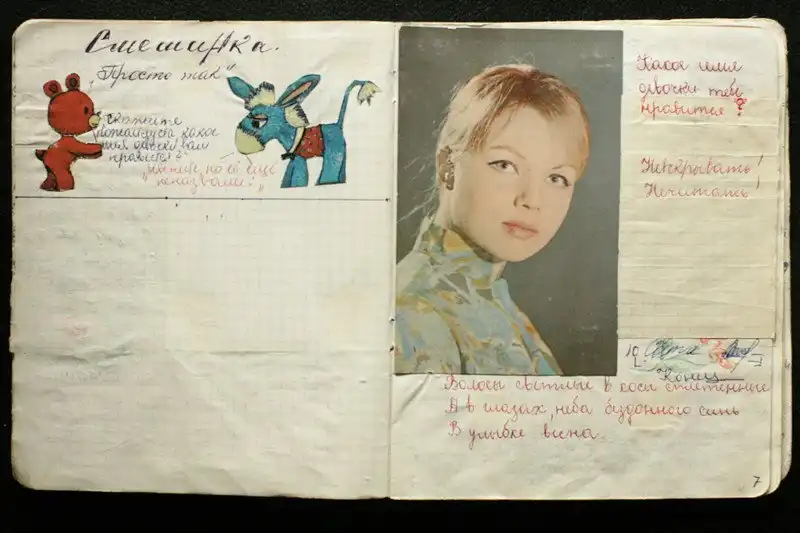 Смешинка.
"Просто так"
Скажите
пожалуйста какое
имя девочки вам
нравится?
"ишкия, но её ещё
неназвали!"
Какое имя
девочки тебе
нравится?
Нескрывать!
Нечитать!
Конец
Волосы светлые в косы сплетенные
А в глазах, неба бездонного синь
В улыбке весна.
7